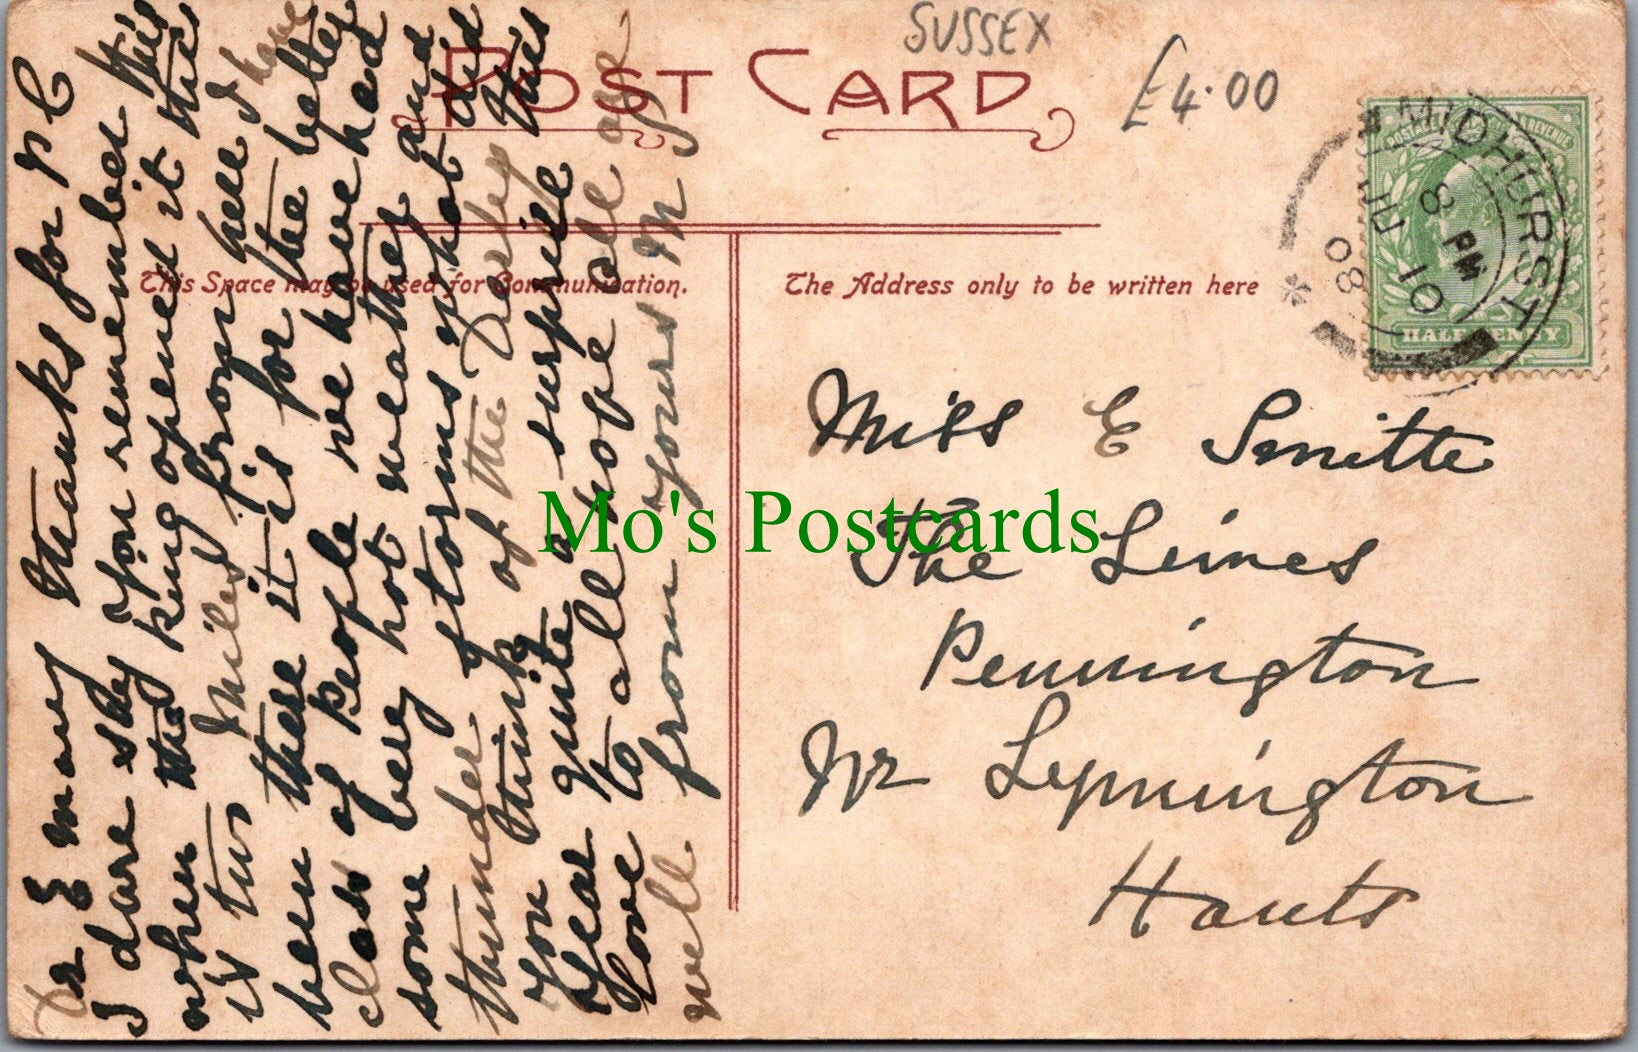 SUSSEX
£4.00
POST CARD
This Space may be used for Communication.
The Address only to be written here
MIDHURST
8 PM
JU 10
08
POSTAGE & REVENUE
HALF PENNY
Dr E many thanks for P C
I dare say you remember this
when the king opened it this
is two Miles from here I have
been there it is for the better
class of people we have had
some very hot weather and
thunder storms what did
you think of the Derby this
year quite a surprise
Love to all hope all are
well from yours M
Miss E Smitte
The Limes
Pennington
Nr Lymington
Hants
Mo's Postcards